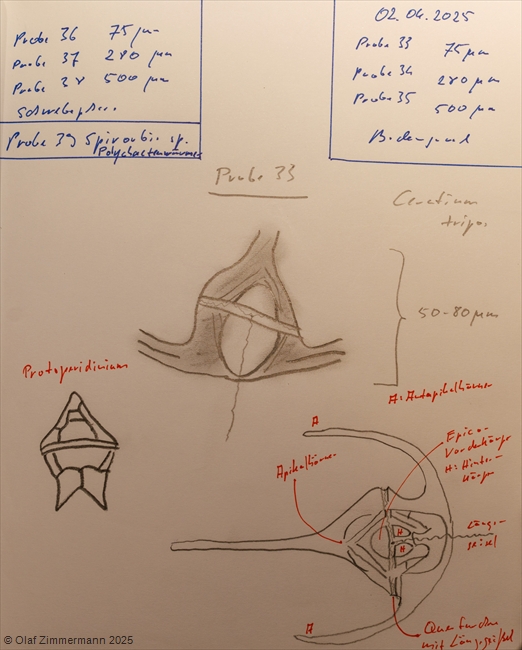 Probe 36 75 µm
Probe 37 280 µm
Probe 38 500 µm
Probe 39 Spirorbis sp.
Polychaetenwürmer
02.04.2025
Probe 33 75 µm
Probe 34 280 µm
Probe 35 500 µm
Probe 33
Ceratium
tripos
50-80 µm
Protoperidinium
A: Antapikalhörner
A
Epico-
Vorderkörper
H: Hinter-
körper
Apikalhörner
Längs-
geisel
H
H
A
mit Längsgeißel
© Olaf Zimmermann 2025